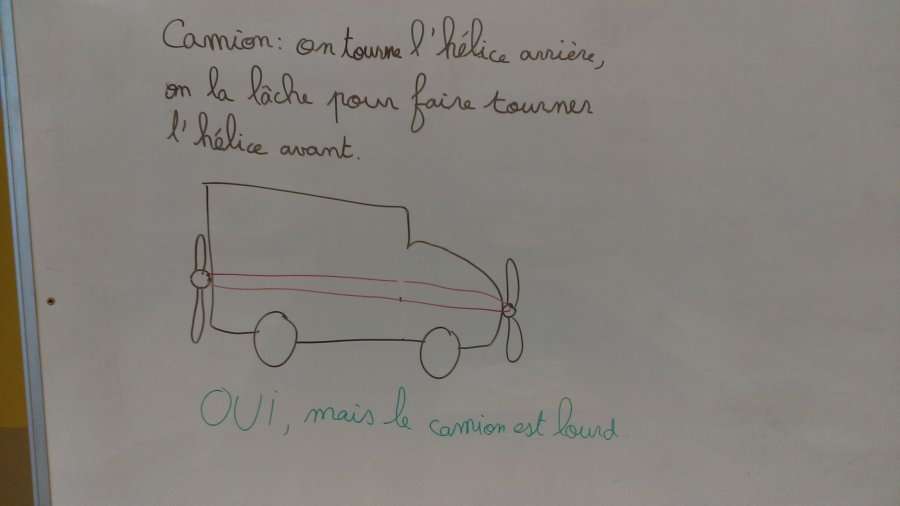 Camion: on tourne l'hélice arrière,
on la lâche pour faire tourner
l'hélice avant.
OUI, mais le camion est lourd